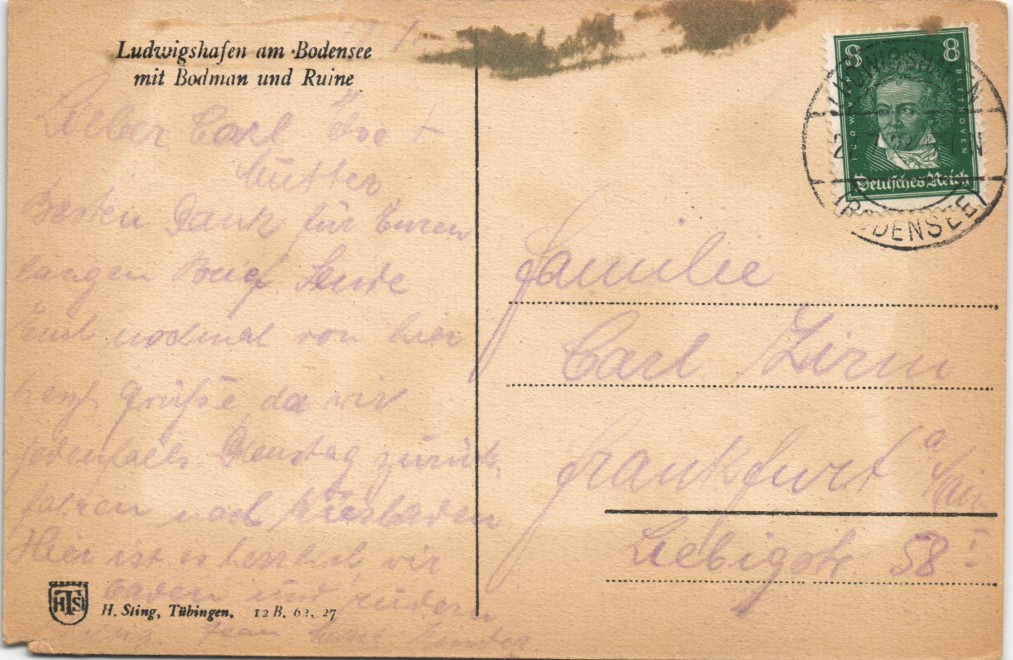 Ludwigshafen am Bodensee
mit Bodman und Ruine
Lieber Carl Ilse +
Mutter
Besten Dank für Euren
langen Brief Sende
Euch nochmal von hier
herzl. Grüße da wir
jedenfalls Dienstag zurück
fahren nach Wiesbaden
Hier ist es herrlich wir
baden und rudern
Kinder
HTS
H. Sting, Tübingen. 12 B. 62. 27
8 8
LUDWIG VAN BEETHOVEN
Deutsches Reich
(BODENSEE)
Familie
Carl Zirm
Frankfurt a/Main
Liebigstr. 58 I